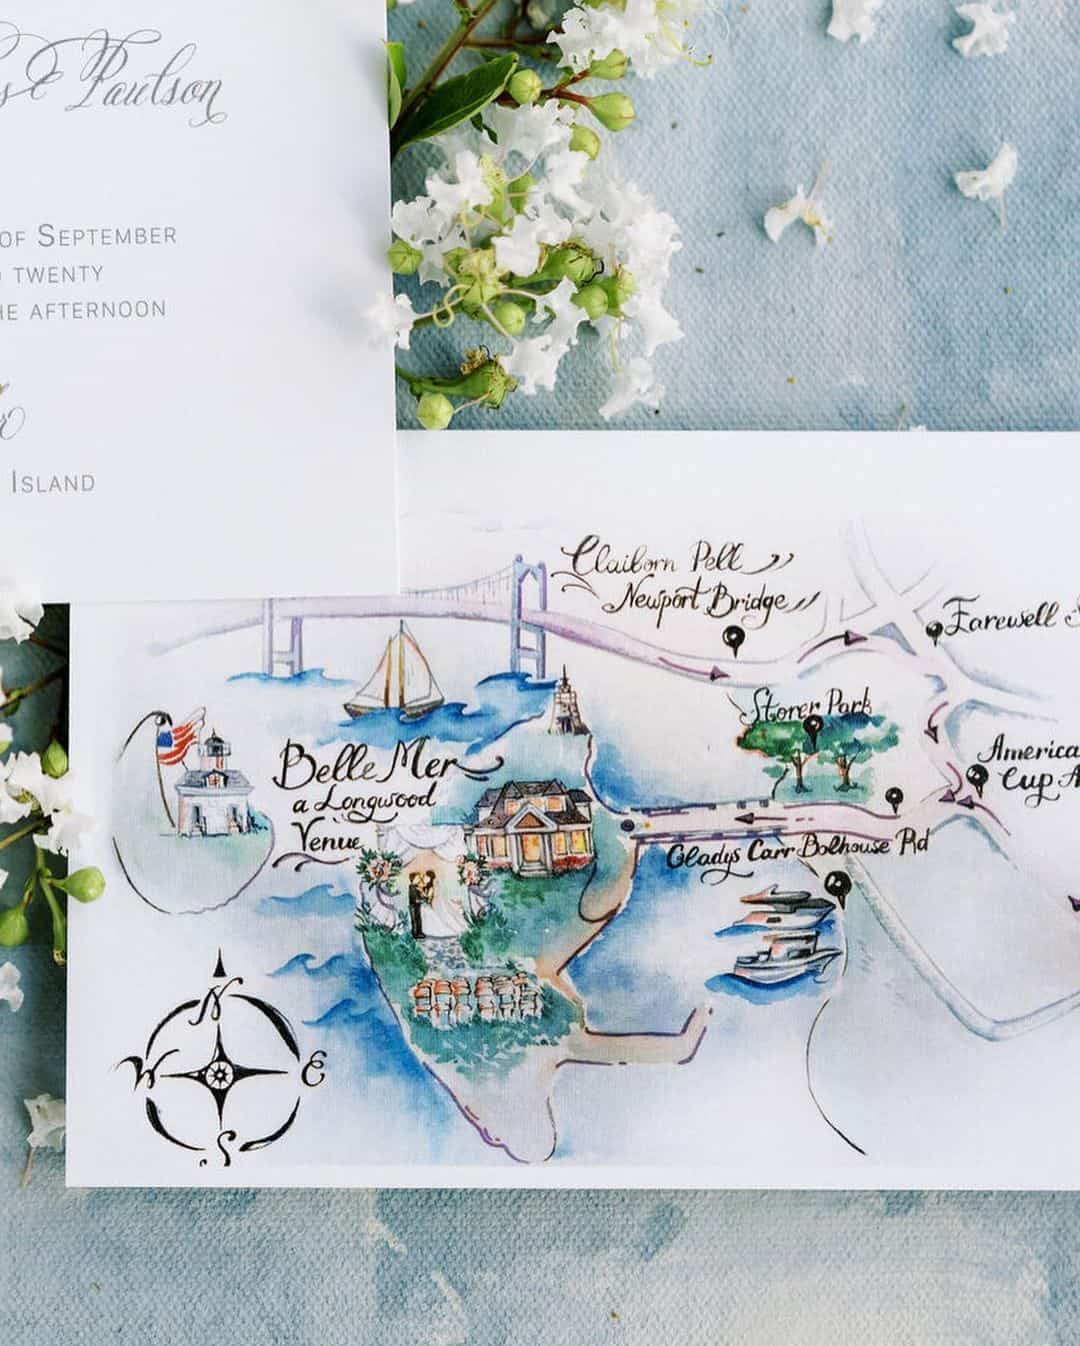 s & Paulson
OF SEPTEMBER
TWENTY
HE AFTERNOON
ISLAND
Claiborn Pell
Newport Bridge
Farewell S
Storer Park
America
Cup A
Belle Mer
a Longwood
Venue
Gladys Carr Bolhouse Rd
N
W E
S